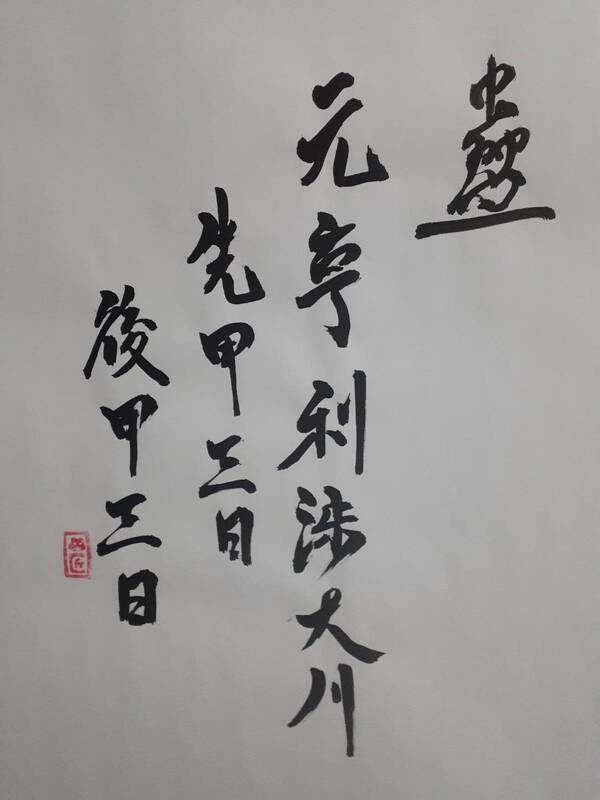 蠱
元亨利涉大川
先甲三日
後甲三日